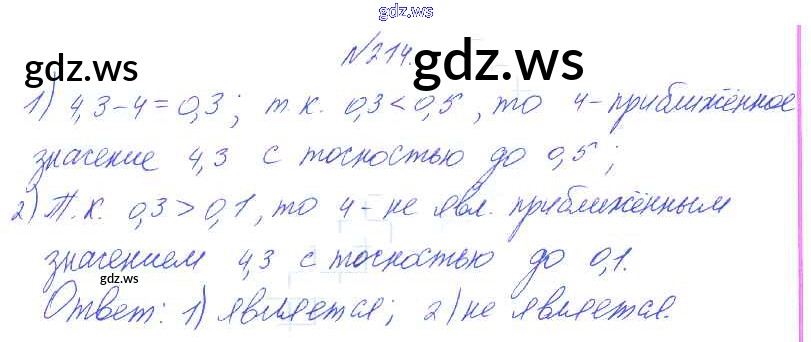 gdz.ws
№214.
gdz.ws
gdz.ws
1) 4,3-4=0,3; т.к. 0,3<0,5, то 4-приближённое
значение 4,3 с точностью до 0,5;
2) Т.к. 0,3>0,1, то 4-не явл. приближённым
значением 4,3 с точностью до 0,1.
gdz.ws
Ответ: 1) является; 2) не является.